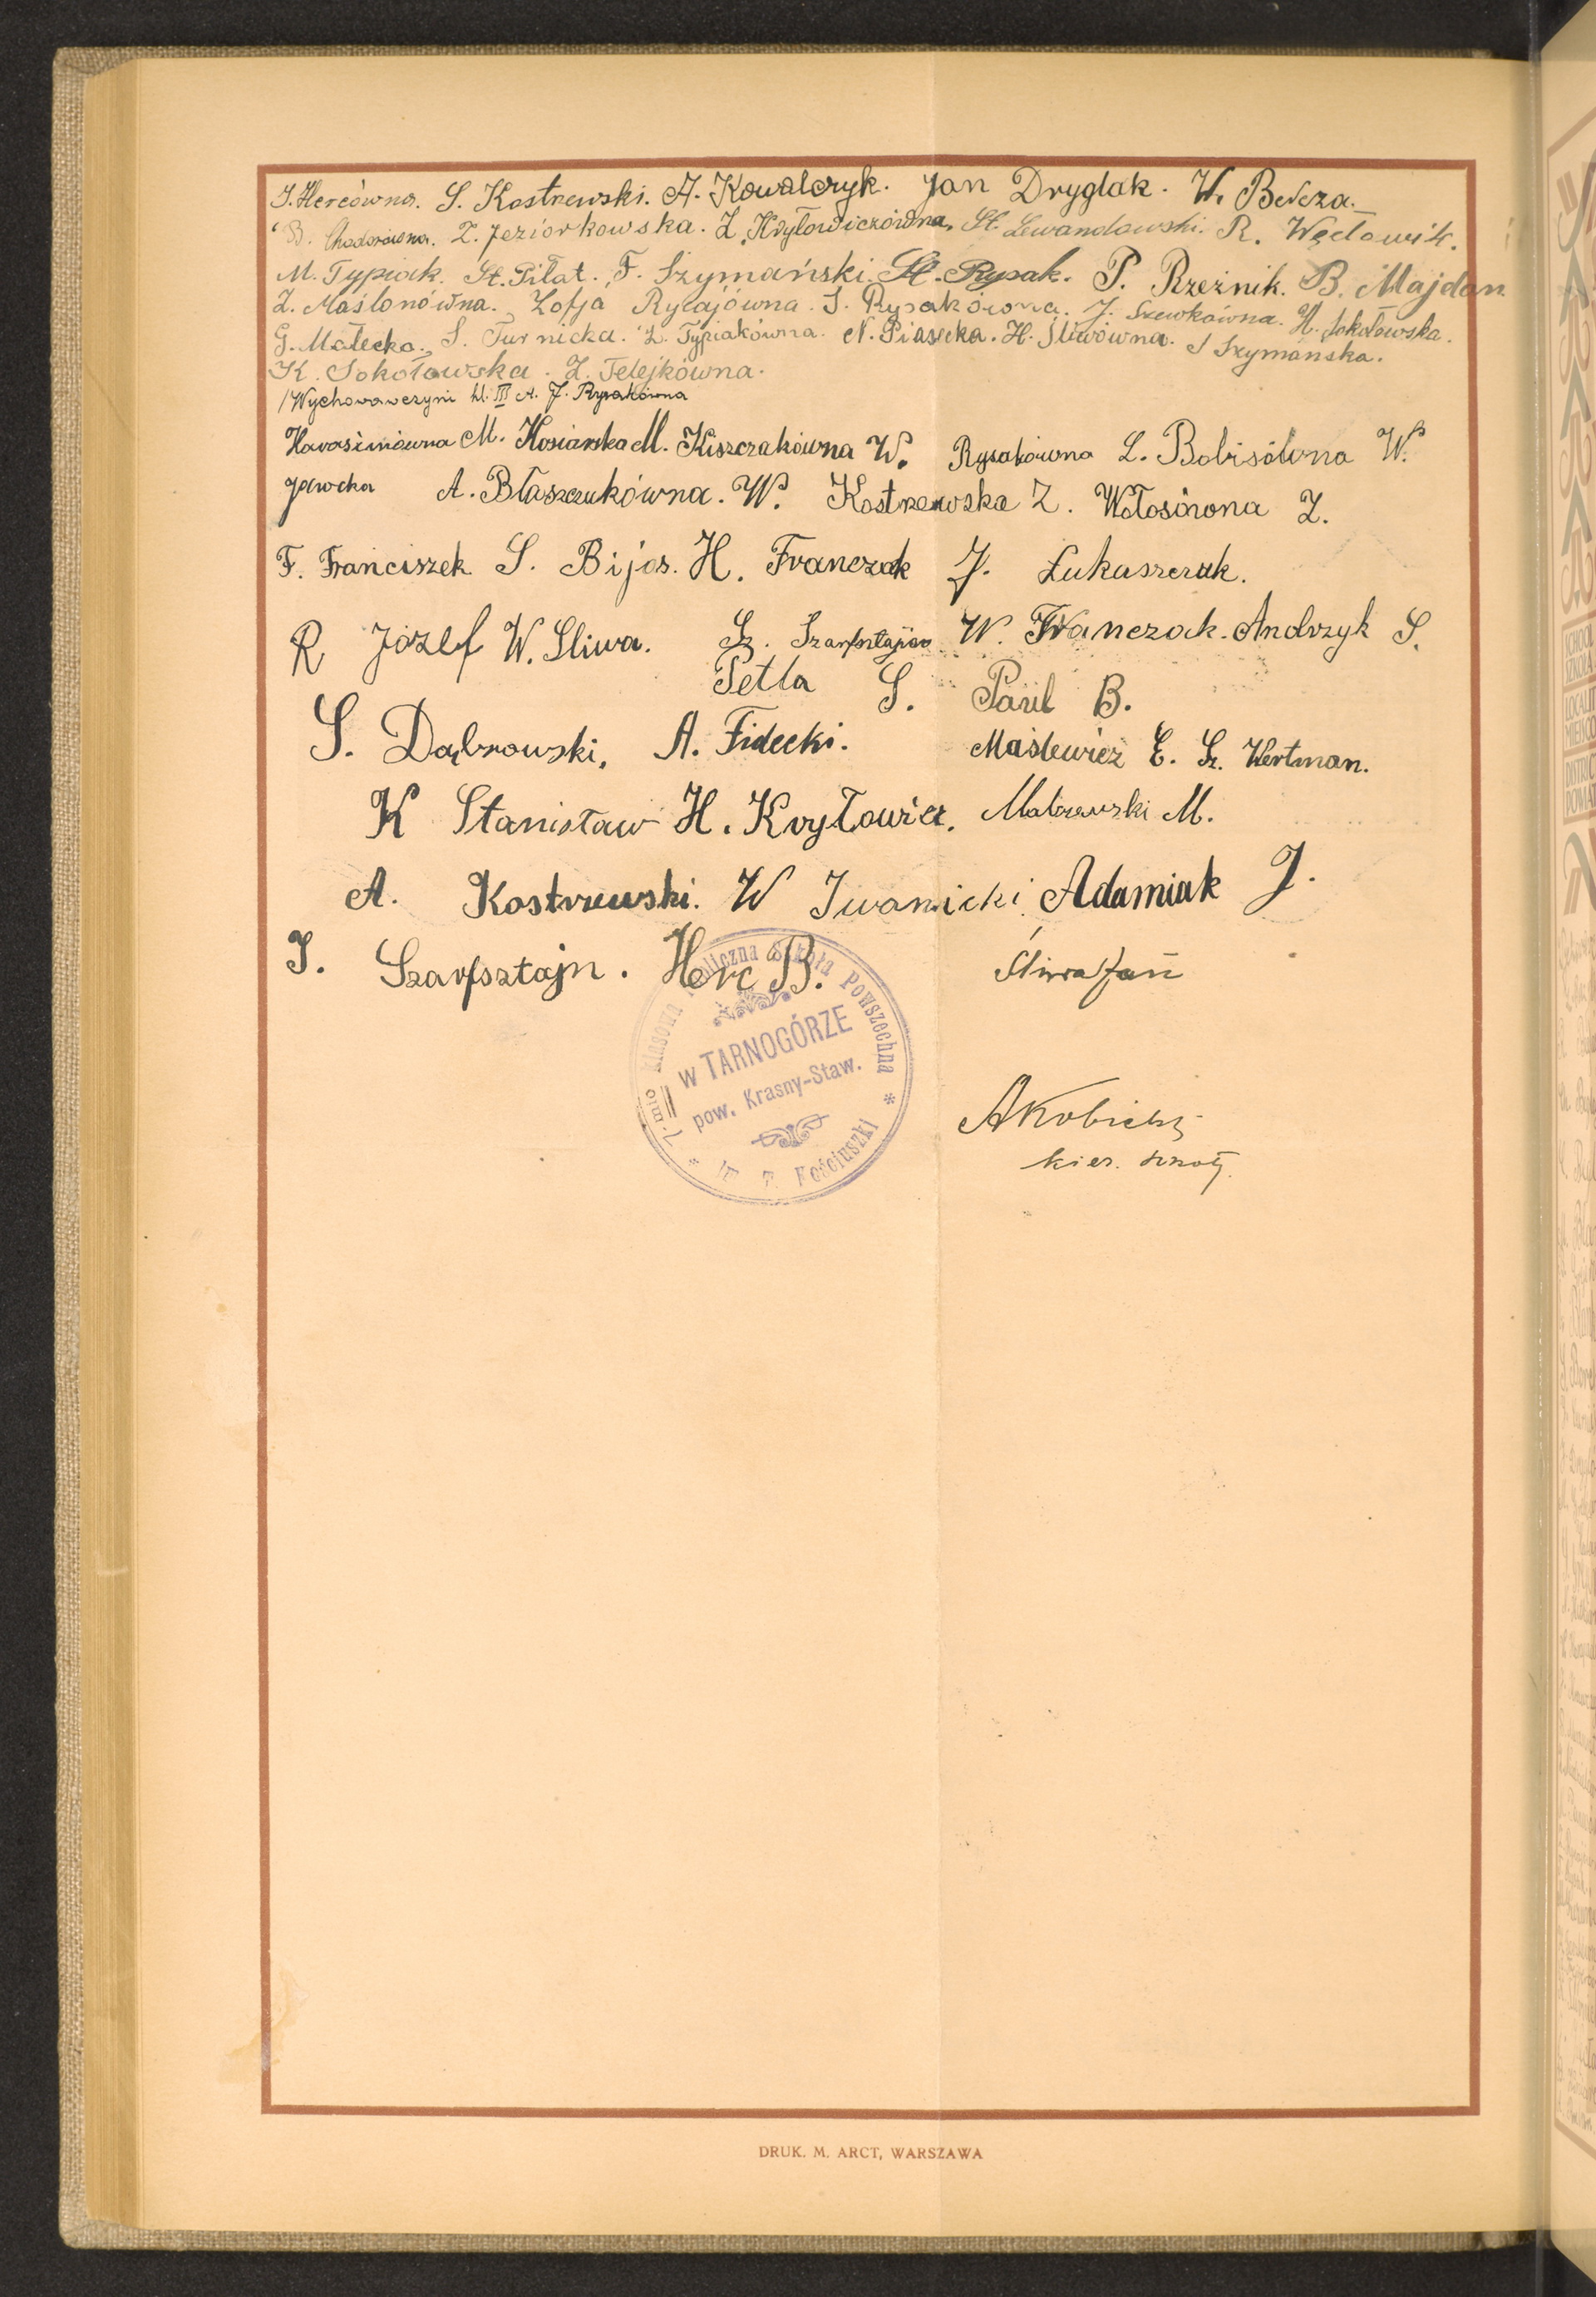 J. Hercówna. S. Kostrzewski. A. Kowalczyk. Jan Dryglak. W. Bereza.
B. Chodorówna. Z. Jeziorkowska. Z. Kryłowiczówna, St. Lewandowski. R. Węcławik.
M. Typiak. St. Piłat. F. Szymański. St. Rysak. P. Rzeźnik. B. Majdan
Z. Maślonówna. Zofja Rylajówna. S. Rysakówna. J. Szewkówna. H. Sokołowska.
G. Małecka. S. Turnicka. Z. Typiakówna. N. Piasecka. H. Śliwówna. S Szymańska.
K. Sokołowska. Z. Telejkówna.
/Wychowawczyni kl. III A. J. Rysakówna
Harasimówna M. Kosiarska M. Kiszczakówna W. Rysakówna L. Bobisówna W.
Jawocka A. Błaszczukówna. W. Kostrzewska Z. Włosówna Z.
F. Franciszek S. Bijos. H. Franczak J. Łukaszczuk.
R Józef W. Sliwa. Sz. Szarfsztajn W. Franczak. Andrzyk S.
Petla S. Paul B.
S. Dąbrowski, A. Fidecki. Maślewicz E. Sz. Wertman.
K Stanisław H. Kryłowicz. Malczewski M.
A. Kostrzewski. W Iwanicki Adamiak J.
J. Szarfsztajn. Herc B. Śliwa Jan
7-mio klasowa Publiczna Szkoła Powszechna
w TARNOGÓRZE
pow. Krasny-Staw.
im. T. Kościuszki
AKobicki
kier. szkoły.
DRUK. M. ARCT, WARSZAWA